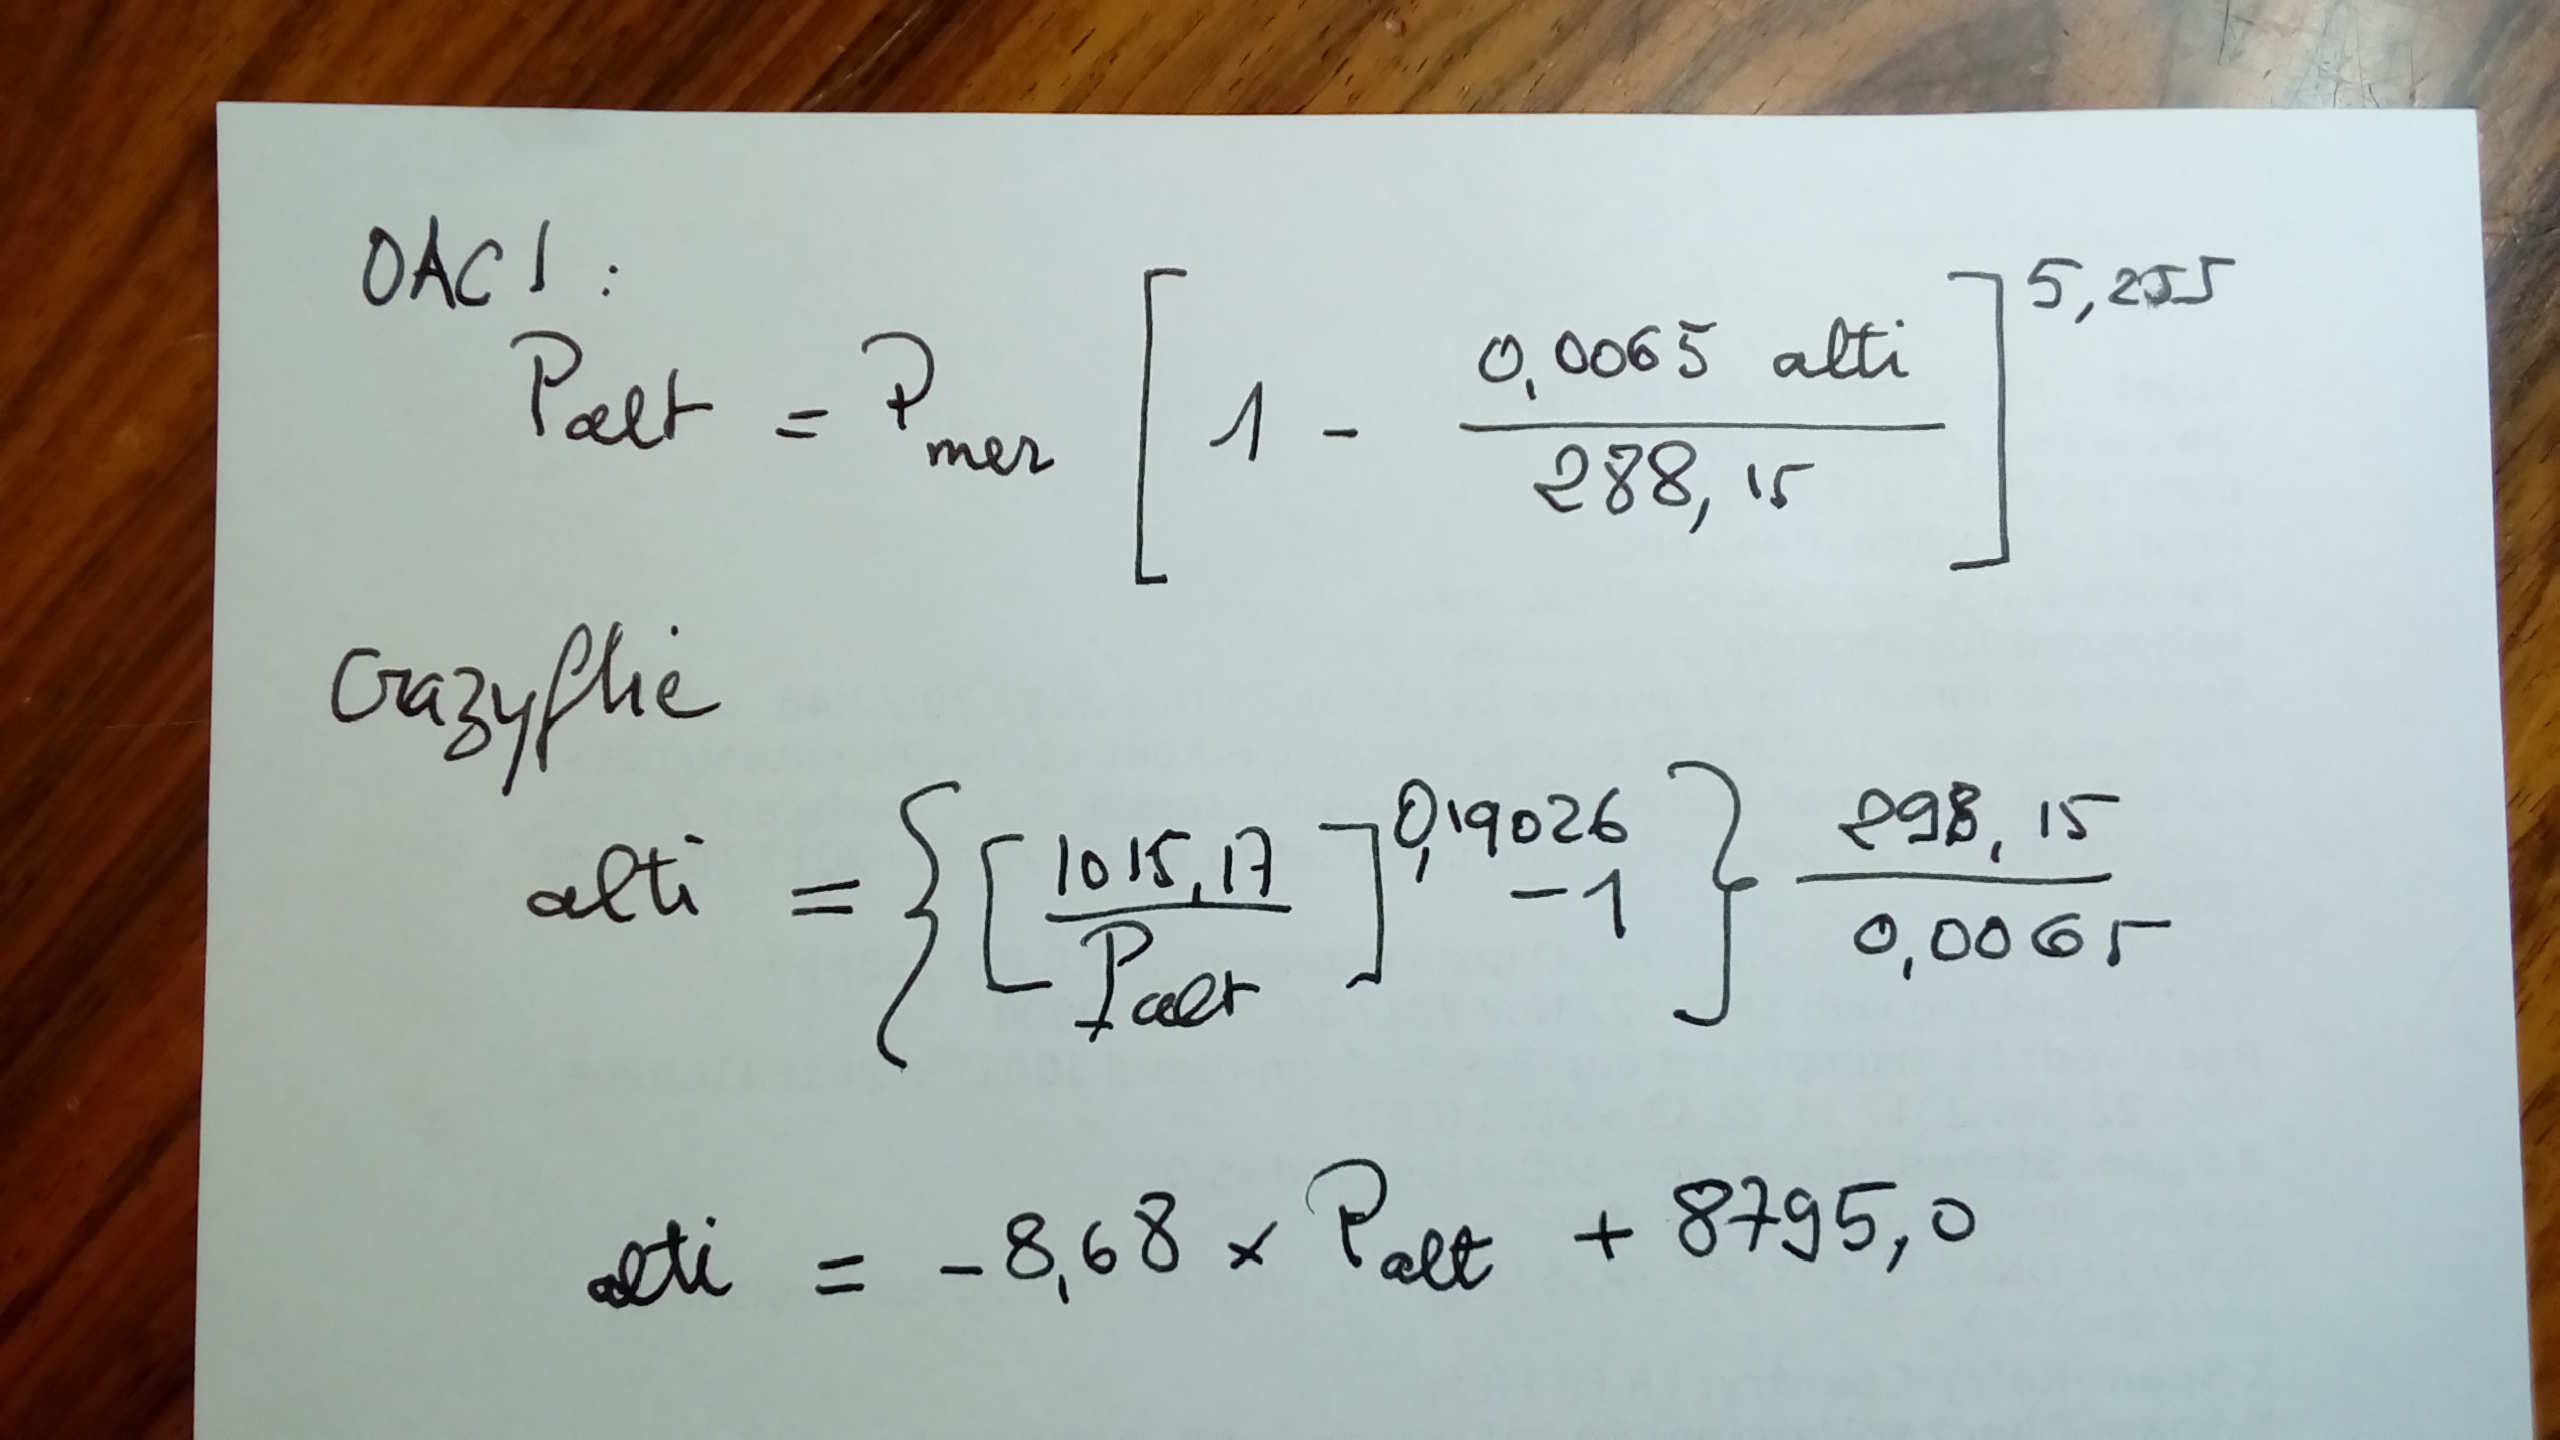 OACI :
Palt = Pmer [ 1 - 0,0065 alti / 288,15 ]^5,255
Crazyflie
alti = { [ 1015,17 / Palt ]^0,19026 - 1 } 298,15 / 0,0065
alti = - 8,68 × Palt + 8795,0